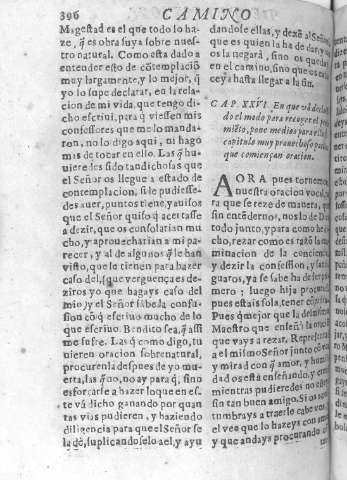 396 CAMINO
Magestad es el que todo lo ha-
ze, q̃ es obra suya sobre nues-
tro natural. Como esta dado a
entender esto de cõtemplaciõ
muy largamente, y lo mejor, q̃
yo lo supe declarar, en la rela-
cion de mi vida, que tengo di-
cho escriui, para q̃ viessen mis
confessores que me lo manda-
ron, no lo digo aqui, ni hago
mas de tocar en ello. Las q̃ hu-
uieredes sido tan dichosas que
el Señor os llegue a estado de
contemplacion, si le pudiesse-
des auer, puntos tiene, y auisos
que el Señor quiso q̃ acertasse
a dezir, que os consolarian mu-
cho, y aprouecharian a mi pa-
recer, y al de algunos q̃ le han
visto, que le tienen para hazer
caso del, que verguença es de-
ziros yo que hagays caso del
mio, y el Señor sabe la confu-
sion cõ q̃ escriuo mucho de lo
que escriuo. Bendito sea, q̃ assi
me sufre. Las q̃ como digo, tu-
uieren oracion sobrenatural,
procurenla despues de yo mu-
erta, las q̃ no, no ay para q̃, sino
esforçarse a hazer lo que en es-
te và dicho ganando por quan-
tas vias pudieren, y haziendo
diligencia para que el Señor se
la dè, suplicandoselo a el, y ayu
dandose ellas, y dexẽ al Señor,
que es quien la ha de dar, y no
os la negarà, sino os quedays
en el camino, sino que os esfor-
ceys hasta llegar a la fin.
CAP. XXVI. En que và declarã-
do el modo para recoger el pensa-
miẽto, pone medios para ello, es
capitulo muy prouechoso para los
que comiençan oracion.
AORA pues tornemos a
nuestra oracion vocal, pa-
ra que se reze de manera, que
sin entẽdernos, nos lo de Dios
todo junto, y para como he di-
cho, rezar como es razõ la exa-
minacion de la conciencia,
y dezir la confession, y santi-
guaros, ya se sabe ha de ser pri-
mero; luego hija procurad,
pues estais sola, tener compañia.
Pues q̃ mejor que la del mismo
Maestro que enseñò la oracion
que vays a rezar. Representad
a el mismo Señor junto cõ vos,
y mirad con q̃ amor, y humil-
dad os està enseñando, y creedme
mientras pudieredes no esteys
sin tan buen amigo. Si os acos-
tumbrays a traerle cabe vos, y
el vee que lo hazeys con amor,
y que andays procurando